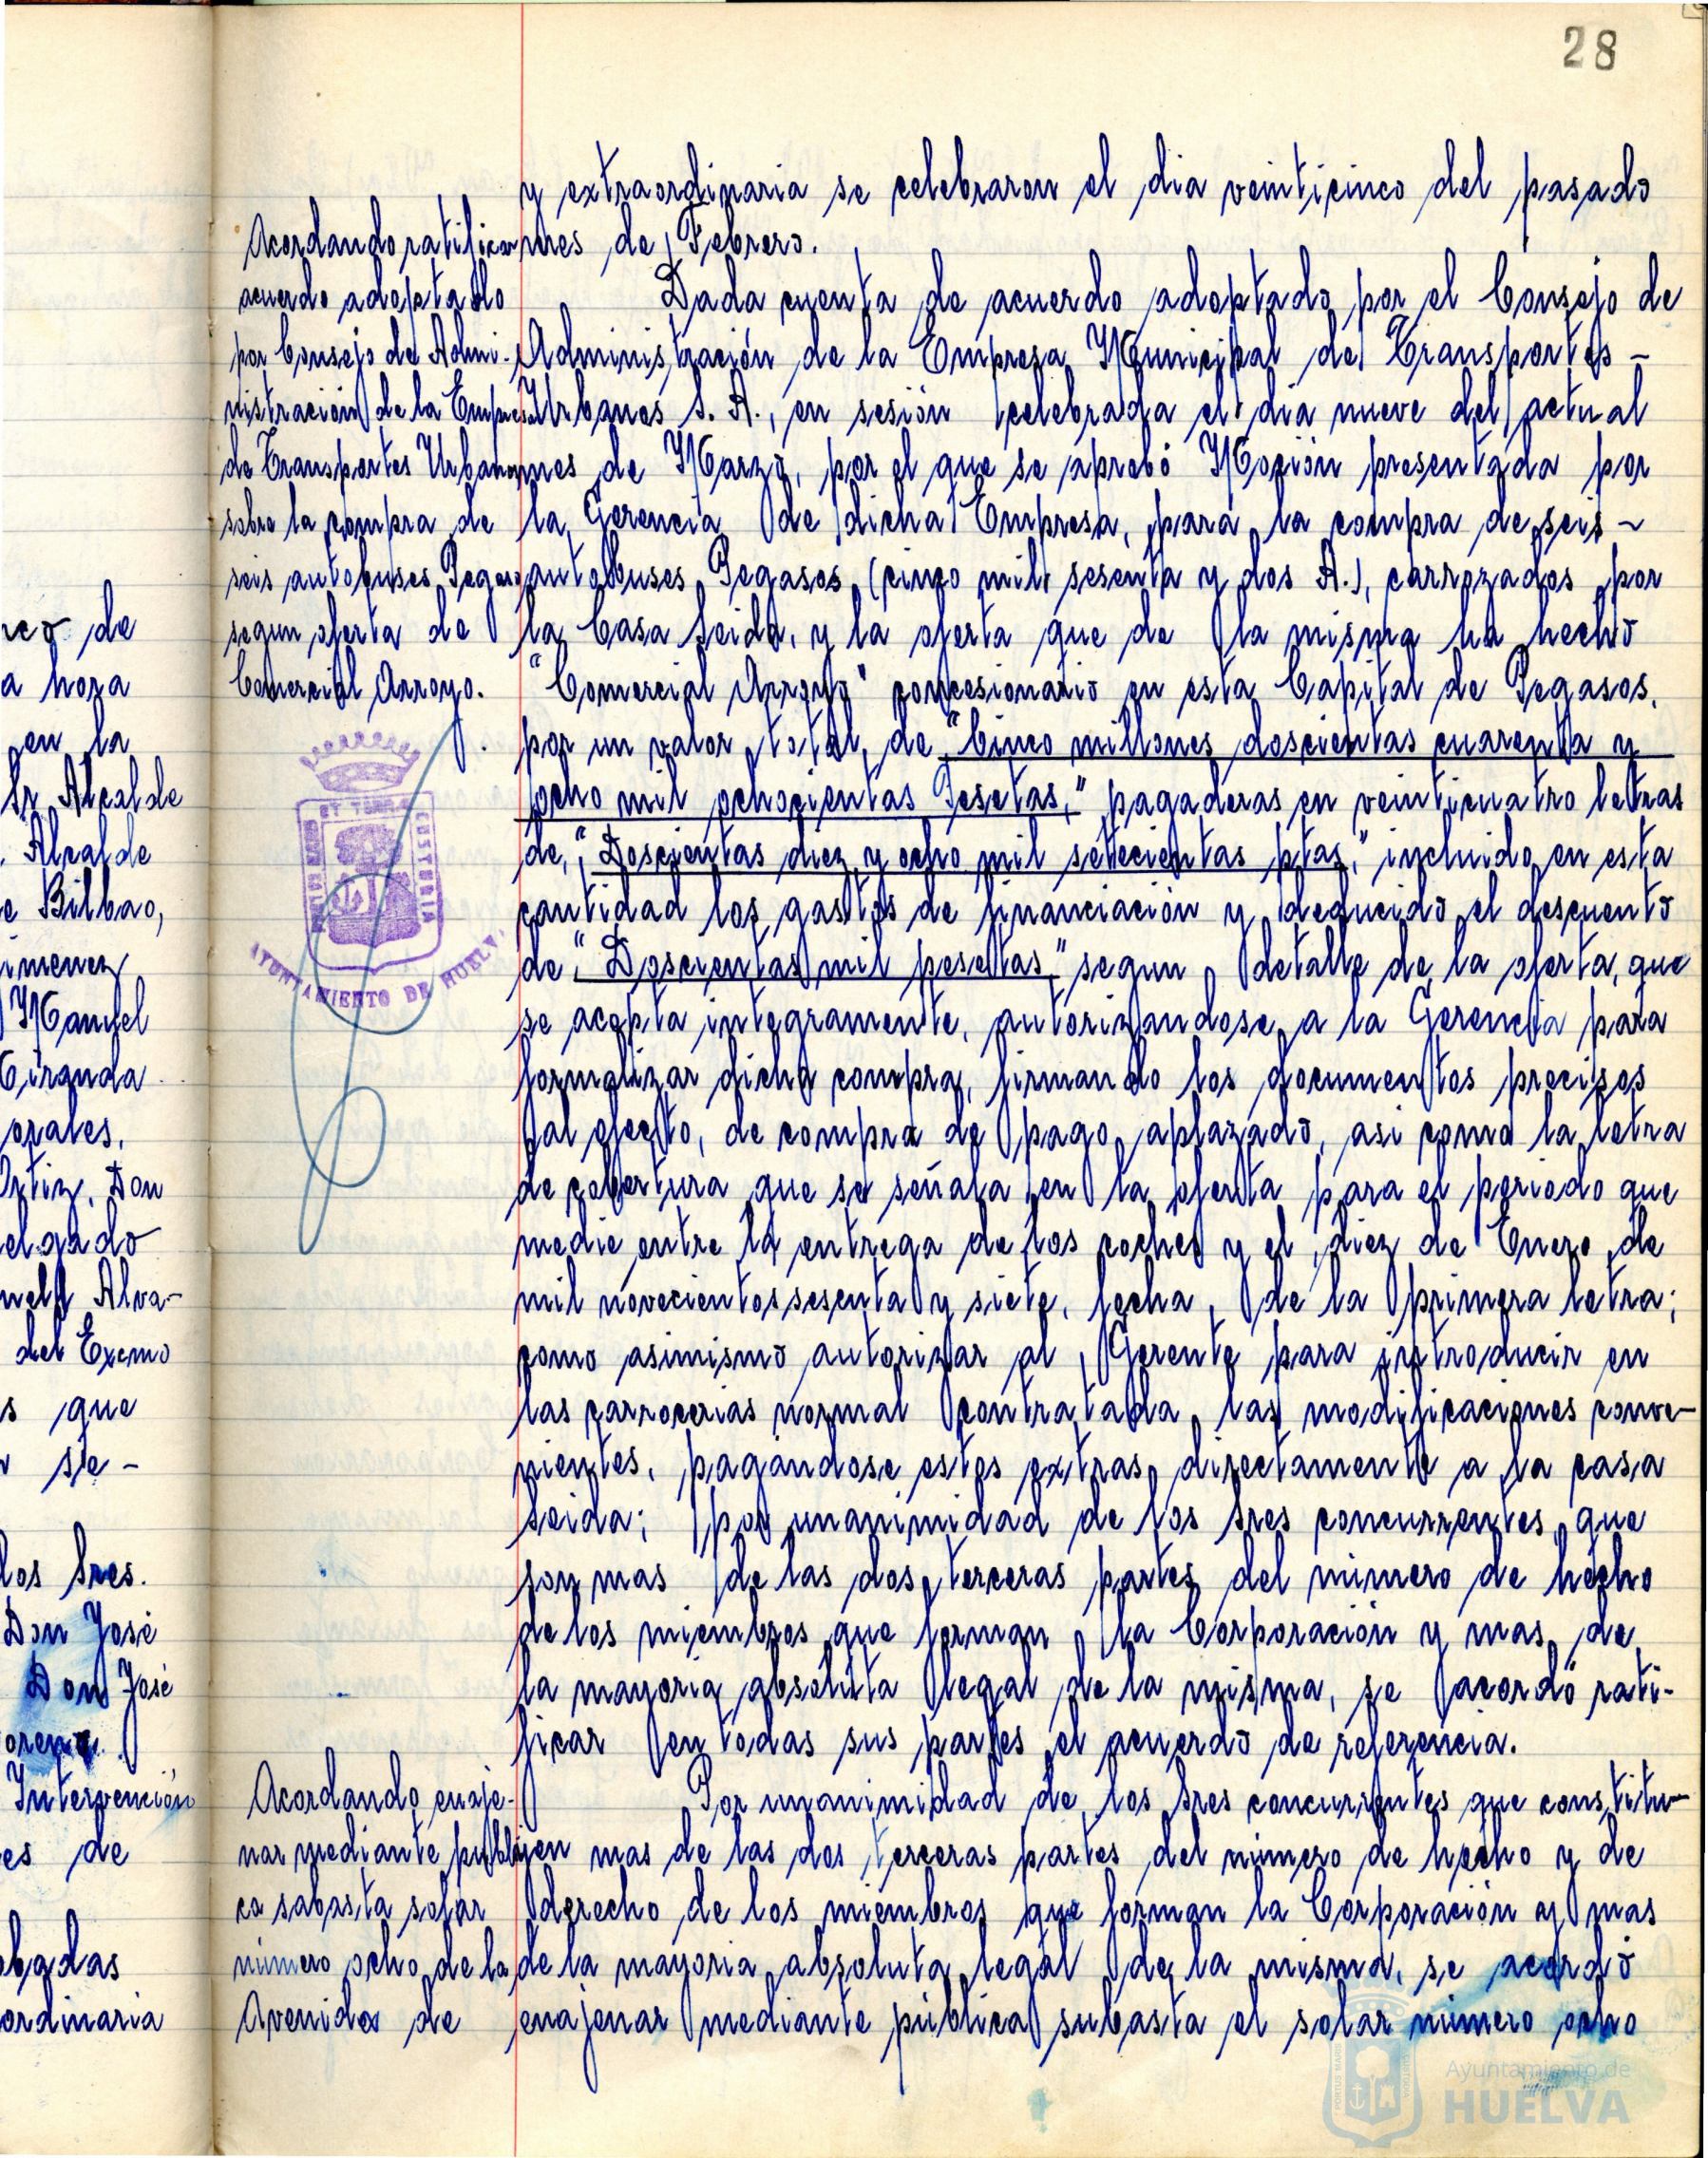 28
rco de
a hora
en la
Sr Alcalde
Alcalde
e Bilbao,
imenez
Manuel
Ciranda
orales,
Ortiz, Don
elgado
nell Alva-
del Excmo
s que
se-
los Sres.
Don José
Don José
oreno.
Intervención
es de
obadas
ordinaria
Acordando ratificar
acuerdo adoptado
por Consejo de Admi-
nistración de la Empresa
de Transportes Urbanos
sobre la compra de
seis autobuses Pegaso
segun oferta de
Comercial Arroyo.
AYUNTAMIENTO DE HUELVA
Acordando enaje-
nar mediante públi-
ca subasta solar
número ocho de la
Avenida de
y extraordinaria se celebraron el dia veinticinco del pasado
mes de Febrero.
Dada cuenta de acuerdo adoptado por el Consejo de
Administración de la Empresa Municipal de Transportes -
Urbanos S. A., en sesión celebrada el dia nueve del actual
mes de Marzo, por el que se aprobó Moción presentada por
la Gerencia de dicha Empresa, para la compra de seis -
autobuses Pegasos (cinco mil sesenta y dos A.), carrozados por
la Casa Seida, y la oferta que de la misma ha hecho
"Comercial Arroyo" concesionario en esta Capital de Pegasos,
por un valor total, de "Cinco millones doscientas cuarenta y
ocho mil ochocientas Pesetas," pagaderas en veinticuatro letras
de, "Doscientas diez y ocho mil setecientas ptas," incluido en esta
cantidad los gastos de financiación y deducido el descuento
de "Doscientas mil pesetas" segun detalle de la oferta, que
se acepta integramente, autorizandose a la Gerencia para
formalizar dicha compra, firmando los documentos precisos
al efecto, de compra de pago aplazado, asi como la letra
de cobertura que se señala en la oferta para el periodo que
medie entre la entrega de los coches y el diez de Enero de
mil novecientos sesenta y siete, fecha de la primera letra;
como asimismo autorizar al Gerente para introducir en
las carrocerias normal contratada, las modificaciones conve-
nientes, pagándose estos extras directamente a la casa
Seida; por unanimidad de los Sres concurrentes que
son mas de las dos terceras partes del número de hecho
de los miembros que forman la Corporación y mas de
la mayoria absoluta legal de la misma, se acordó rati-
ficar en todas sus partes el acuerdo de referencia.
Por unanimidad de los Sres concurrentes que constitu-
yen mas de las dos terceras partes del número de hecho y de
derecho de los miembros que forman la Corporación y mas
de la mayoria absoluta legal de la misma, se acordó
enajenar mediante pública subasta el solar número ocho
Ayuntamiento de
HUELVA